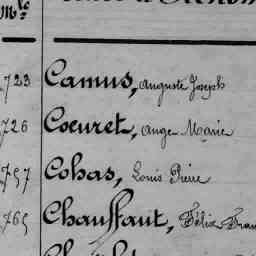 Mle
723 Camus, Auguste Joseph
726 Coeuret, Ange Marie
757 Cohas, Louis Pierre
765 Chauffaut, Félix Fran